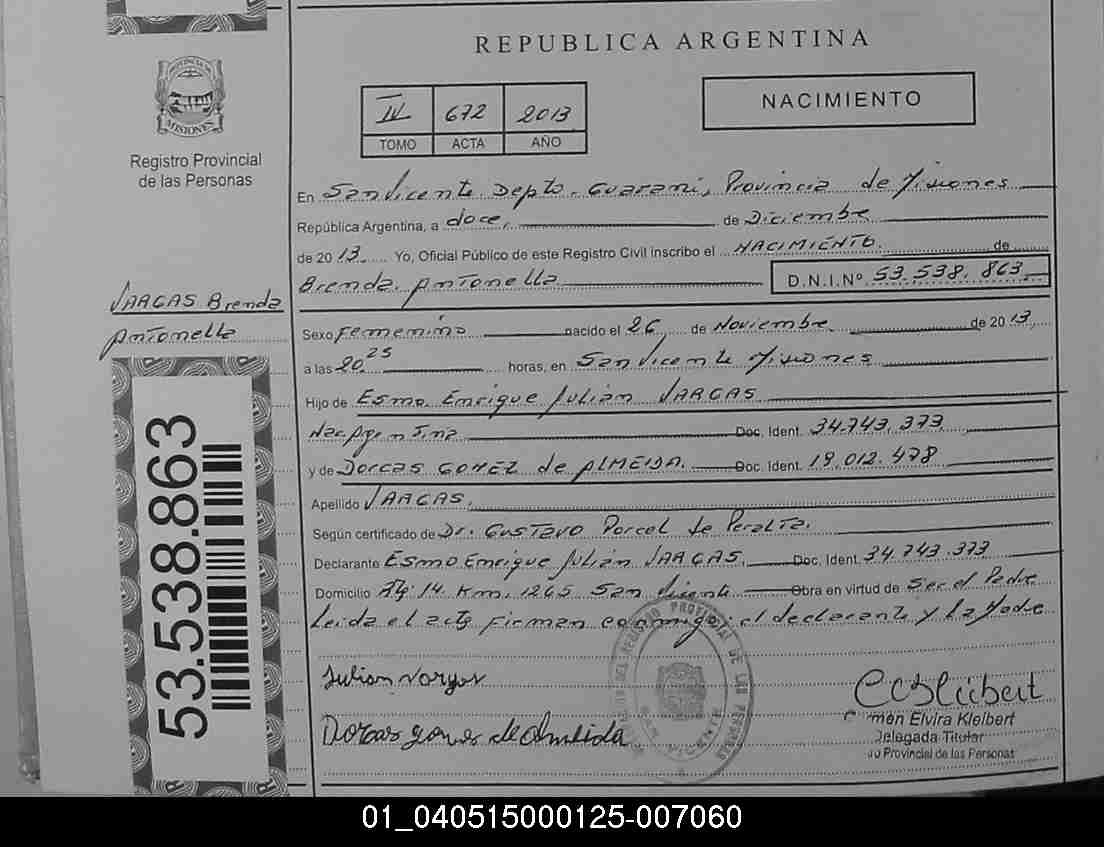 REPUBLICA ARGENTINA
PROVINCIA DE
MISIONES
Registro Provincial
de las Personas
IV 672 2013
TOMO ACTA AÑO
NACIMIENTO
En San Vicente Depto. Guarani, Provincia de Misiones
República Argentina, a doce, de Diciembre
de 2013. Yo, Oficial Público de este Registro Civil inscribo el NACIMIENTO. de
Brenda Antonella D.N.I.Nº 53.538.863
VARGAS Brenda
Antonella
Sexo Femenino nacido el 26 de Noviembre de 2013,
a las 20,25 horas, en San Vicente Misiones
Hijo de Esmo Enrique Julián VARGAS
Nac Argentina Doc. Ident. 34.743.373
y de Dorcas GOMEZ de ALMEIDA. Doc. Ident. 19.012.478
Apellido VARGAS.
Según certificado de Dr. GUSTAVO Porcel de Peralta.
Declarante Esmo Enrique Julián VARGAS. Doc. Ident. 34.743.373
Domicilio 14 Km. 1265 San Vicente Obra en virtud de Ser el Padre
Leida el acta Firman conmigo: el declarante y La Madre
53.538.863
Julian Vargas
Dorcas gomes de Almeida
REGISTRO PROVINCIAL DE LAS PERSONAS
SAN VICENTE
Elvira Kleibert
Delegada Titular
Provincial de las Personas
01_040515000125-007060